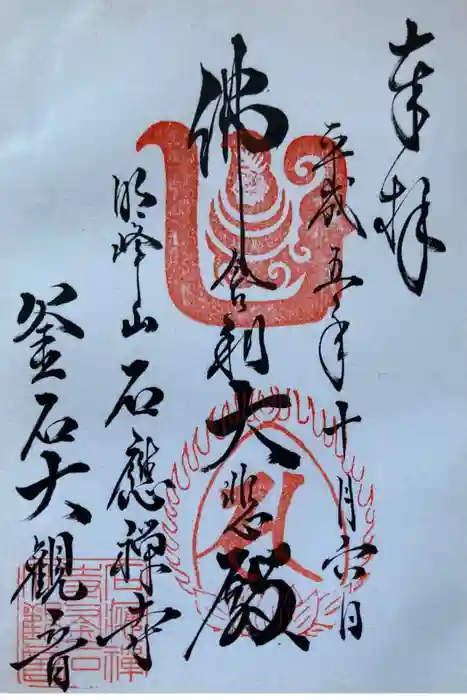 奉拝
平成五年十月六日
佛舎利大悲殿
明峰山石應禅寺
釜石大観音